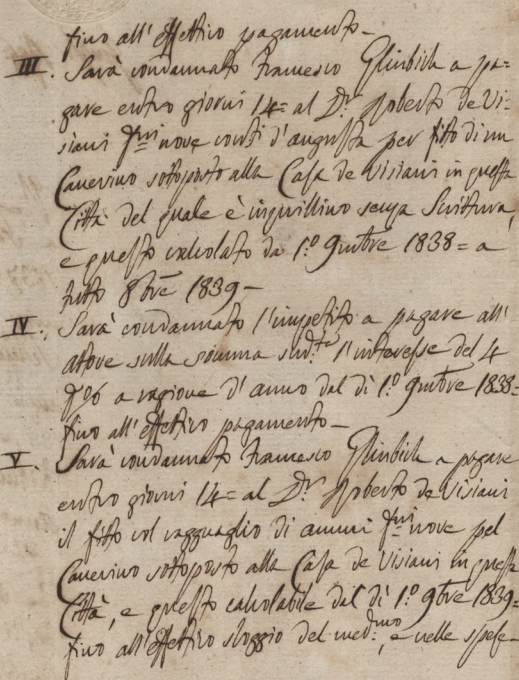 fino all'effettivo pagamento_
III. Sarà condannato Francesco Glinbich a pa=
gare entro giorni 14= al Dr. Roberto de Vi=
siani fni nove conti d'augusta per fitto di un
Canevino sottoposto alla Casa de Visiani in questa
Città del quale è inquillino senza Scrittura,
e questo calcolato da 1.o 9mbre 1838= a
tutto 8bre 1839_
IV. Sarà condannato l'impetito a pagare all'
attore sulla somma sud.ta l'interesse del 4
p% a ragione d'anno dal dì 1.o 9mbre 1838=
fino all'effettivo pagamento_
V. Sarà condannato Francesco Glinbich a pagare
entro giorni 14= al Dr. Roberto de Visiani
il fitto col ragguaglio di annui fni nove pel
Canevino sottoposto alla Casa de Visiani in questa
Città, e questo calcolabile dal dì 1.o 9bre 1839=
fino all'effettivo sloggio del med.mo, e nelle spese_